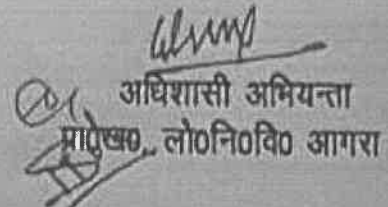 अधिशासी अभियन्ता
प्रा०ख०, लो०नि०वि० आगरा